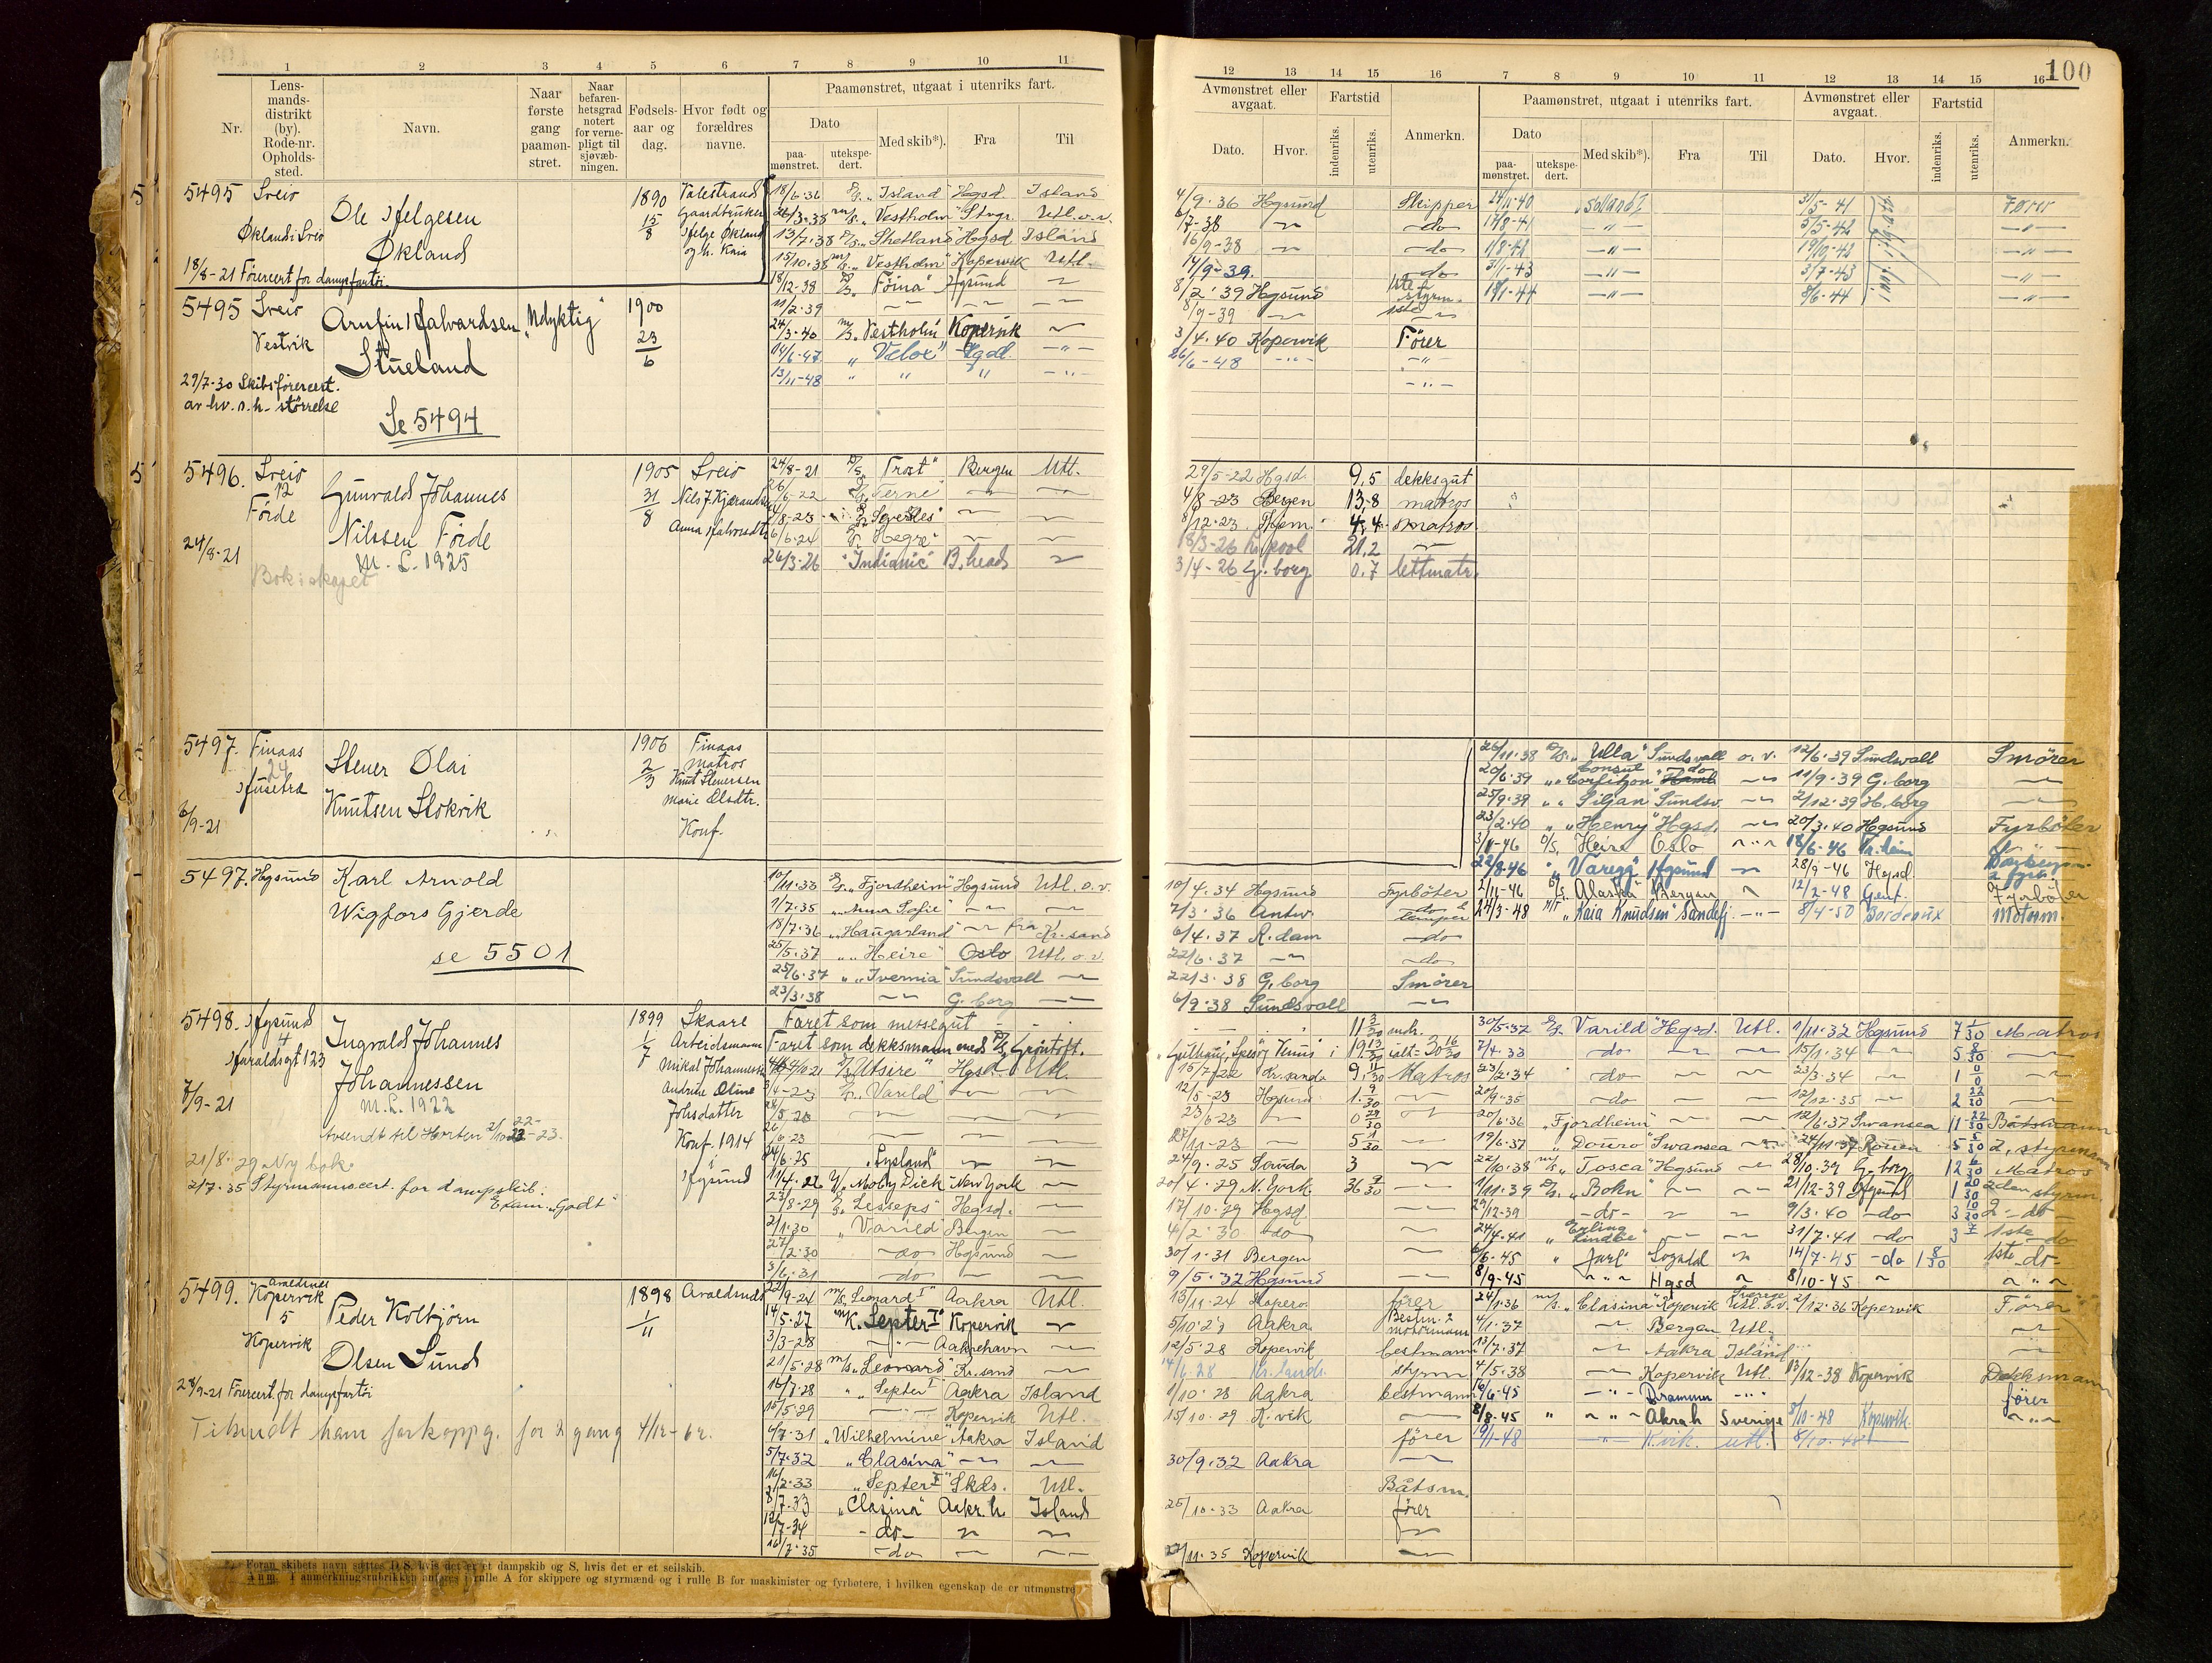 1 2 3 4 5 6 7 8 9 10 11
Nr.
Lensmandsdistrikt (by). Rode-nr. Opholdssted.
Navn.
Naar første gang paamønstret.
Naar befarenhetsgrad notert for vernepligt til sjøvæbningen.
Fødselsaar og dag.
Hvor født og forældres navne.
Paamønstret, utgaat i utenriks fart.
Dato
paamønstret. utekspedert.
Med skib*).
Fra
Til
5495 Sveio
Ole Helgesen
Økland
Økland i Sveio
18/8-21 Førercert for dampfartøi
1890
15/8
Valestrand
Gaardbruker
Helge Økland
og h. Kaia
18/6.36 D/S. "Island" Hgsd. Island
26/3.38 m/s. "Vestholm" Stvgr. Utl. o. v.
13/7.38 D/S. "Shetland" Hgsd. Island
15/10.38 m/s. "Vestholm" Kopervik Utl.
5495 Sveio
Vestvik
Arnfin Halvardsen "Udyktig"
Stueland
29/7-30 Skibsførercert.
av hv. s. h. størrelse
Se 5494
1900
23/6
18/12.38 D/S. "Föina" Hgsund
11/2.39
24/3.40 m/s. Vestholm Kopervik
14/6-47 " Velox" Hgsd.
13/11-48 " " "
5496. Sveio
12
Førde
24/8-21
Gunvald Johannes
Nilssen Förde
M. L. 1925
Bok i skapet
1905
31/8
Sveio
Nils J. Kjærandsen
Anna Halvorsdtr
24/8-21 D/S "Trost" Bergen Utl.
26/6-22 D/S. "Terne"
8-23
6/6.24 "Hegre"
26/3.26 "Indianic" B. head
5497. Finaas
24
Husetræ
6/9-21
Stener Olai
Knutsen Stokvik
1906
2/3
Finaas
matros
Knut Stenersen
Marie Olsdtr.
Konf.
5497. Hgsund
Karl Arnold
Wigfors Gjerde
se 5501
10/11.33 D/S. "Fjordheim" Hgsund Utl. o. v.
1/7.35 " "Anna Sofie"
18/7.36 " "Haugarland" fra Kr. sand
25/5.37 " "Heire" Oslo Utl. o. v.
25/6.37 " "Ivernia" Sundsvall
23/3.38 G. borg
5498. Hgsund
4
Haraldsgt 123
7/9-21
Ingvald Johannes
Johannessen
M. L. 1922
Avsendt til Horten
21/8.29 Ny bok.
2/7.35 Styrmannscert. for dampskib.
Exam. "Godt"
1899
1/7
Skaare
Arbeidsmann
Mikal Johannessen
Andrine Oline
Johsdatter
Konf. 1914
i
Hgsund
Faret som messegut
Faret som dekksmann med D/S Grøntoft.
4/10.21 D/S Utsire" Hgsd. Utl.
D/S. "Varild"
24/6.25 "Sysland"
11/4.26 "Moby Dick" New York
23/8-29 D/S "Lesseps" Hgsd.
2/1.30 "Varild" Bergen
27/2.30 do Hgsund
3/6.31 do
5499. Avaldsnes
Kopervik
5
Kopervik
Peder Kolbjörn
Olsen Sund
28/9-21 Førercert. for dampfartøi
1898
1/11
Avaldsnes
22/9-24 m/s. "Leonard I" Aakra Utl.
14/5.27 m/k. Septer I" Kopervik
3/3-28 Aakrehavn
21/5.28 m/s "Leonard" Kr. sand
16/7.28 " "Septer I" Aakra Island
15/5.29 Kopervik Utl.
6/7.31 "Wilhelmine" Aakra Island
5/7.32 "Clasina"
16/2.33 "Septer I" Skds. Utl.
8/7.33 "Clasina" Aakr. h. Island
12/7.34 - do -
16/7.35 - do
Foran skibets navn sættes D/S, hvis det er et dampskib og S, hvis det er et seilskib.
Anm. I anmerkningsrubrikken anføres i rulle A for skippere og styrmænd og i rulle B for maskinister og fyrbøtere, i hvilken egenskap de er utmønstret
12 13 14 15 16 7 8 9 10 11 12 13 14 15 16
100
Avmønstret eller avgaat.
Dato. Hvor.
Fartstid
indenriks. utenriks.
Anmerkn.
Paamønstret, utgaat i utenriks fart.
Dato
paamønstret. utekspedert.
Med skib*). Fra Til
Avmønstret eller avgaat.
Dato. Hvor.
Fartstid
indenriks. utenriks.
Anmerkn.
4/9.36 Hgsund Skipper 31/5-41 Fører
6/7-38 do 17/8-41 -"- 3/5-42 -"-
16/9-38 do 1/8-42 -"- 19/10-42 -"-
14/9-39. do 31/1-43 -"- 3/7-43 -"-
8/2.39 Hgsund 1ste styrm. 18/1-44 -"- 8/6-44 -"-
8/9-39 1ste
3/4.40 Kopervik Fører
26/6-48 -"- -"-
-"-
29/5-22 Hgsd. 9,5 dekksgut
4/8-23 Bergen 13,8 matros
8/12-23. Hjem. 4,4 matros
18/3-26 L. pool 21,2
3/4-26 G. borg 0,7 lettmatr.
26/11.38 D/S. "Ulla" Sundsvall o. v. 12/6.39 Sundsvall Smører
20/6.39 " "Consul Corfitzon" do 11/9.39 G. borg
25/9.39 " "Siljan" Sundsv. 2/12.39 H. borg
23/2.40 " "Henry" Hgsd. 20/3.40 Hgsund Fyrbøter
D/S. Heire Oslo 18/6-46 Tr. heim
22/8-46 " Varegg Hgsund 28/9-46 Hgsd.
10/4.34 Hgsund Fyrbøter 2/11-46 D/S. "Alaska" Bergen 12/2-48 Gent. Fyrbøter
7/3.36 Antw. do lemper 24/3-48 M/T "Kaia Knudsen" Sandefj. -"- 8/4-50 Bordeaux Motorm.
6/4.37 R. dam do
22/6.37 do
22/3.38 G. borg Smører
6/9.38 Sundsvall
11 3/30 mdr. 30/5.32 D/S. Varild" Hgsd. Utl. 1/11.32 Hgsund 7 1/30 Matros
7/4.33 do 15/1.34 5 8/30
Kr. sand Matros 23/2.34 do 23/3.34
12/5-23 Hgsund 20/9.35 do 12/12.35 2 22/30
23/6-23 20/6.36 "Fjordheim" 12/6.37 Swansea 11 22/30 Båtsmann
11-23 5 1/30 19/6.37 "Douro" Swansea 24/11.37 Rouen 5 5/30 2. styrmann
24/9.25 Sauda 3 22/10.38 m/s "Tosca" Hgsund 28/10.39 G. borg 12 6/30 Matros
20/4.29 N. York 36 9/30 1/11.39 D/S. "Bokn" 21/12-39 Hgsund 1 20/30 2den styrm.
17/10.29 Hgsd. 29/12-39 -do- 9/3.40 -do 3 10/30 2- do
4/2.30 do 24/4.41 " Erling Lindøe" 31/7.41 -do 1ste do
30/1.31 Bergen 6/6.45 " Jarl" Sogndal 14/7.45 -do 1 8/30 1ste -do-
9/5.32 Hgsund 8/9-45 Hgsd 8/10-45
13/11.24 Koperv. fører 24/1.36 m/s. "Clasina" Kopervik Sverige Utl. o. v. 2/12.36 Kopervik Fører
5/10.27 Aakra Bestm. & motormann 4/1.37 Bergen Utl.
12/5.28 Kopervik bestmann 13/7.37 Aakra Island
14/6.28 Kr. sand styrm 4/5.38 Kopervik Utl. 13/12-38 Kopervik Dekksmann
1/10.28 Aakra bestmann 16/6-45 Drammen -"- fører
15/10.29 K. vik 8/8-45 " Akrah Sverige 8/10-48 Kopervik
fører 19/1-48 -"- K. vik. utl. 8/10.48
30/9.32 Aakra
Båtsm.
25/10.33 Aakra fører
/11.35 Kopervik